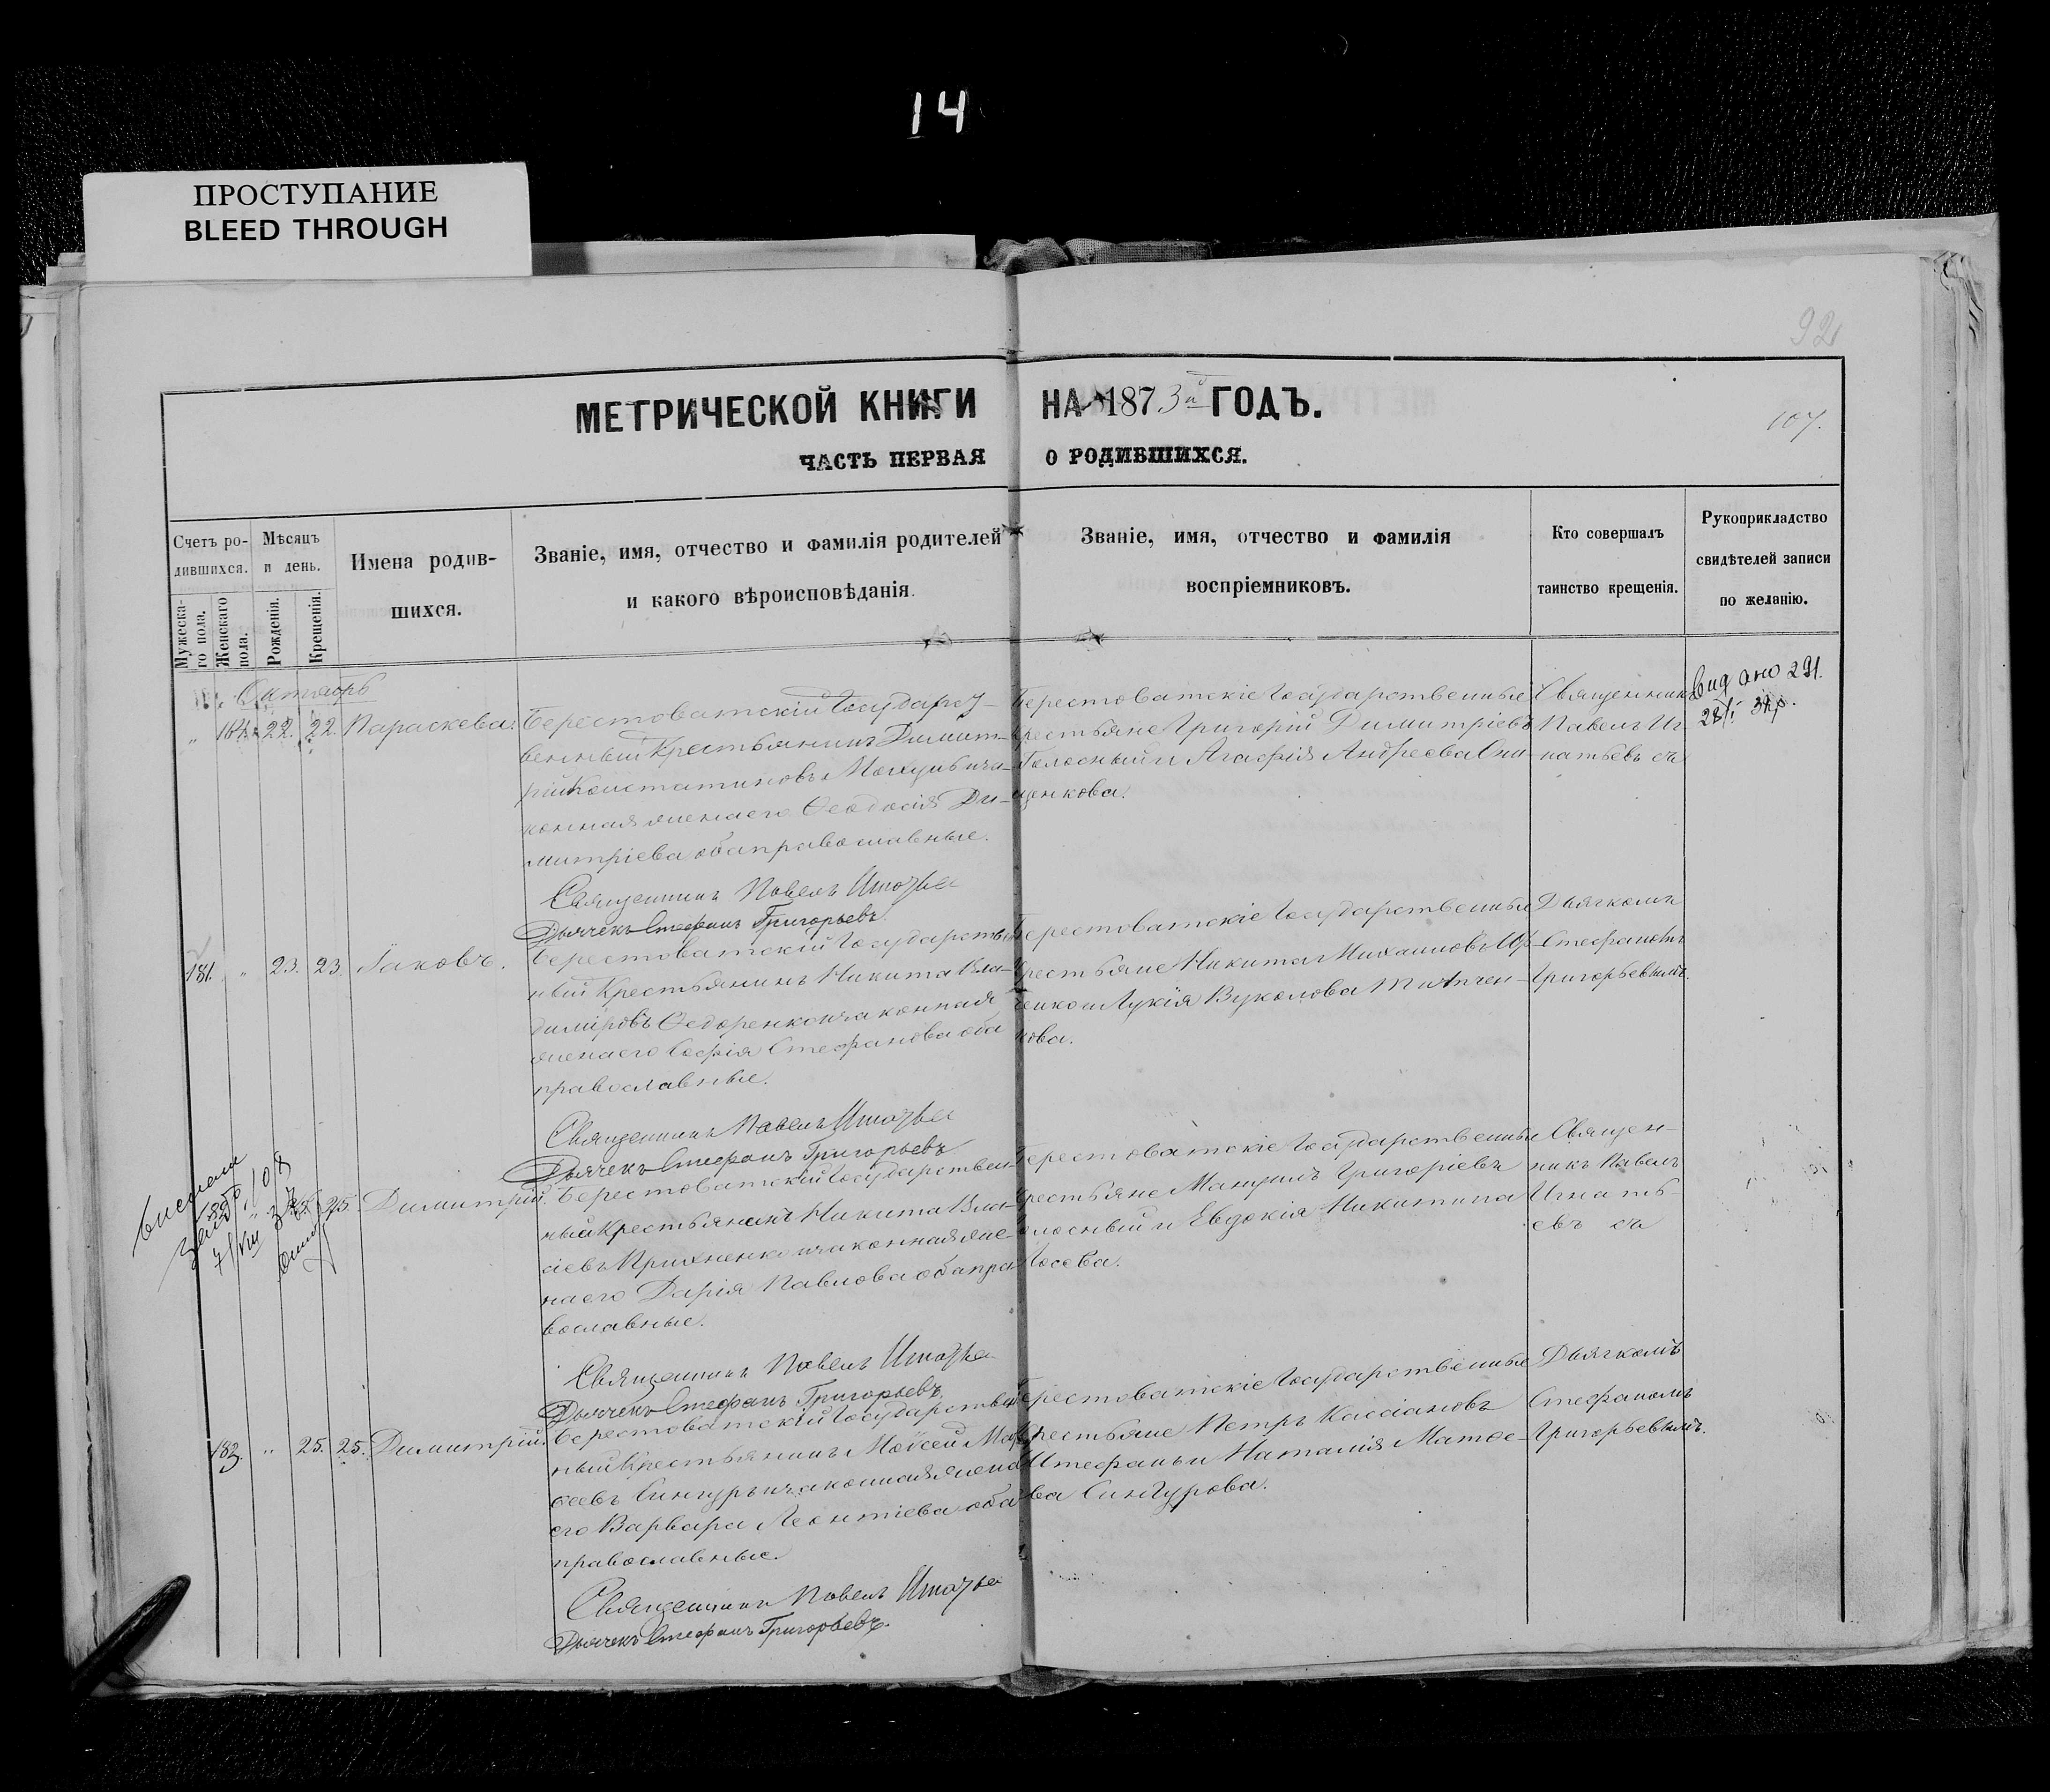 14
ПРОСТУПАНИЕ
BLEED THROUGH
92
МЕТРИЧЕСКОЙ КНИГИ НА 1873й ГОДЪ.
107.
ЧАСТЬ ПЕРВАЯ О РОДИВШИХСЯ.
Счетъ ро-
дившихся.
Мужеска-
го пола.
Женскаго
пола.
Мѣсяцъ
и день.
Рожденія.
Крещенія.
Имена родив-
шихся.
Званіе, имя, отчество и фамилія родителей
и какого вѣроисповѣданія.
Званіе, имя, отчество и фамилія
воспріемниковъ.
Кто совершалъ
таинство крещенія.
Рукоприкладство
свидѣтелей записи
по желанію.
Октябрь
" 22. 22. Параскева.
Берестоватскій Государст-
венный Крестьянинъ Димит-
рій
законная жена его Ѳеодосія Ди-
митріева оба православные.
Священникъ Павелъ
Дьячекъ Стефанъ Григорьевъ
Берестоватскіе Государственные
крестьяне Григорій Димитріевъ
Голосный и Агафія Андреева Они-
щенкова.
Священникъ
Павелъ Иг-
натьевъ съ
291.
181. " 23. 23. Іаковъ.
Берестоватскій Государствен
ный Крестьянинъ Никита Вла-
диміровъ Ѳедоренко и законная
жена его Софія Стефанова оба
православные.
Священникъ Павелъ
Дьячекъ Стефанъ Григорьевъ
Берестоватскіе Государственные
крестьяне Никита Михаиловъ
и Лукія Вуколова
кова.
Дьячкомъ
Стефаномъ
Григорьевымъ.
108
" 25. Димитрій.
Берестоватскій Государствен-
ный Крестьянинъ Никита Вла-
сіевъ и законная же-
на его Дарія Павлова оба пра-
вославные.
Священникъ Павелъ
Дьячекъ Стефанъ Григорьевъ
Берестоватскіе Государственные
крестьяне Мануилъ Григоріевъ
и Евдокія Никитина
Священ-
никъ Павелъ
Игнать-
евъ съ
183. " 25. 25. Димитрій.
Берестоватскій Государствен
ный Крестьянинъ Моѵсей Мат
ѳеевъ Сингуръ и законная жена
его Варвара Леонтіева оба
православные.
Священникъ Павелъ
Дьячекъ Стефанъ Григорьевъ.
Берестоватскіе Государственные
Крестьяне Петръ Кассіановъ
Штефанъ и Наталія Матѳе-
ва Сингурова.
Дьячкомъ
Стефаномъ
Григорьевымъ.